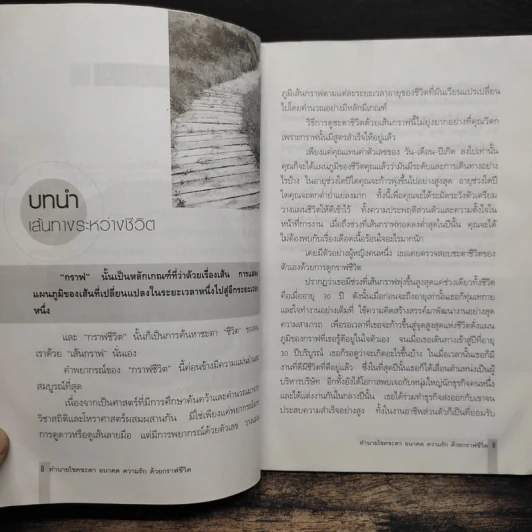 บทนำ
เส้นทางระหว่างชีวิต
"กราฟ" นั้นเป็นหลักเกณฑ์ที่ว่าด้วยเรื่องเส้น การแสดง
แผนภูมิของเส้นที่เปลี่ยนแปลงในระยะเวลาหนึ่งไปสู่อีกระยะเวลา
หนึ่ง
และ "กราฟชีวิต" นั้นก็เป็นการค้นหาชะตา "ชีวิต" ของคน
เราด้วย "เส้นกราฟ" นั่นเอง
คำพยากรณ์ของ "กราฟชีวิต" นี้ค่อนข้างมีความแม่นยำและ
สมบูรณ์ที่สุด
เนื่องจากเป็นศาสตร์ที่มีการศึกษาค้นคว้าและคำนวณมาจาก
วิชาสถิติและโหราศาสตร์ผสมผสานกัน มิใช่เพียงแต่พยากรณ์ด้วย
การดูดาวหรือดูเส้นลายมือ แต่มีการพยากรณ์ด้วยตัวเลข
8 ทำนายโชคชะตา อนาคต ความรัก ด้วยกราฟชีวิต
ภูมิเส้นกราฟตามแต่ละระยะเวลาอายุของชีวิตที่ผันเวียนแปรเปลี่ยน
ไปโดยคำนวณอย่างมีหลักมีเกณฑ์
วิธีการดูชะตาชีวิตด้วยเส้นกราฟนี้ไม่ยุ่งยากอย่างที่คุณวิตก
เพราะกราฟนั้นมีสูตรสำเร็จให้อยู่แล้ว
เพียงแค่คุณแทนค่าตัวเลขของ วัน-เดือน-ปีเกิด ลงไปเท่านั้น
คุณก็จะได้แผนภูมิของชีวิตคุณแล้วว่ามันมีระดับและการเดินทางอย่าง
ไรบ้าง ในอายุช่วงใดปีใดคุณจะก้าวพุ่งขึ้นไปอย่างสูงสุด อายุช่วงใดปี
ใดคุณจะตกต่ำย่ำแย่ลงมาก ทั้งนี้เพื่อคุณจะได้ระมัดระวังตัวเตรียม
วางแผนชีวิตให้ดีเข้าไว้ ทั้งความประพฤติส่วนตัวและความตั้งใจใน
หน้าที่การงาน เมื่อถึงช่วงที่เส้นกราฟทอดลงต่ำสุดในปีนั้น คุณจะได้
ไม่ต้องพบกับเรื่องเดือดเนื้อร้อนใจอะไรมากนัก
เคยมีตัวอย่างผู้หญิงคนหนึ่ง เธอเคยตรวจสอบชะตาชีวิตของ
ตัวเองด้วยการดูกราฟชีวิต
ปรากฏว่าเธอมีช่วงที่เส้นกราฟพุ่งขึ้นสูงสุดแค่ช่วงเดียวทั้งชีวิต
คือเมื่ออายุ 30 ปี ดังนั้นเมื่อก่อนจะถึงอายุเท่านั้นเธอก็ทุ่มเทกาย
และใจทำงานอย่างเต็มที่ ใช้ความคิดสร้างสรรค์มาพัฒนางานอย่างสุด
ความสามารถ เพื่อรอเวลาที่เธอจะก้าวขึ้นสู่จุดสูงสุดแห่งชีวิตดังแผน
ภูมิของกราฟที่เธอรู้ดีอยู่ในใจตัวเอง จนเมื่อเธอเดินทางเข้าสู่ปีที่อายุ
30 ปีบริบูรณ์ เธอก็รอดูว่าจะเกิดอะไรขึ้นบ้าง ในเมื่อเวลานั้นเธอก็มี
งานที่ดีมีชีวิตที่ดีอยู่แล้ว ซึ่งในที่สุดปีนั้นเธอก็ได้เลื่อนตำแหน่งเป็นผู้
บริหารบริษัท อีกทั้งยังได้โอกาสพบเจอกับหนุ่มใหญ่นักธุรกิจคนหนึ่ง
และได้แต่งงานกันในกลางปีนั้น เธอได้ร่วมทำธุรกิจส่งออกกับเขาจน
ประสบความสำเร็จอย่างสูง ทั้งในงานอาชีพส่วนตัวก็เป็นที่ยอมรับ
ทำนายโชคชะตา อนาคต ความรัก ด้วยกราฟชีวิต 9